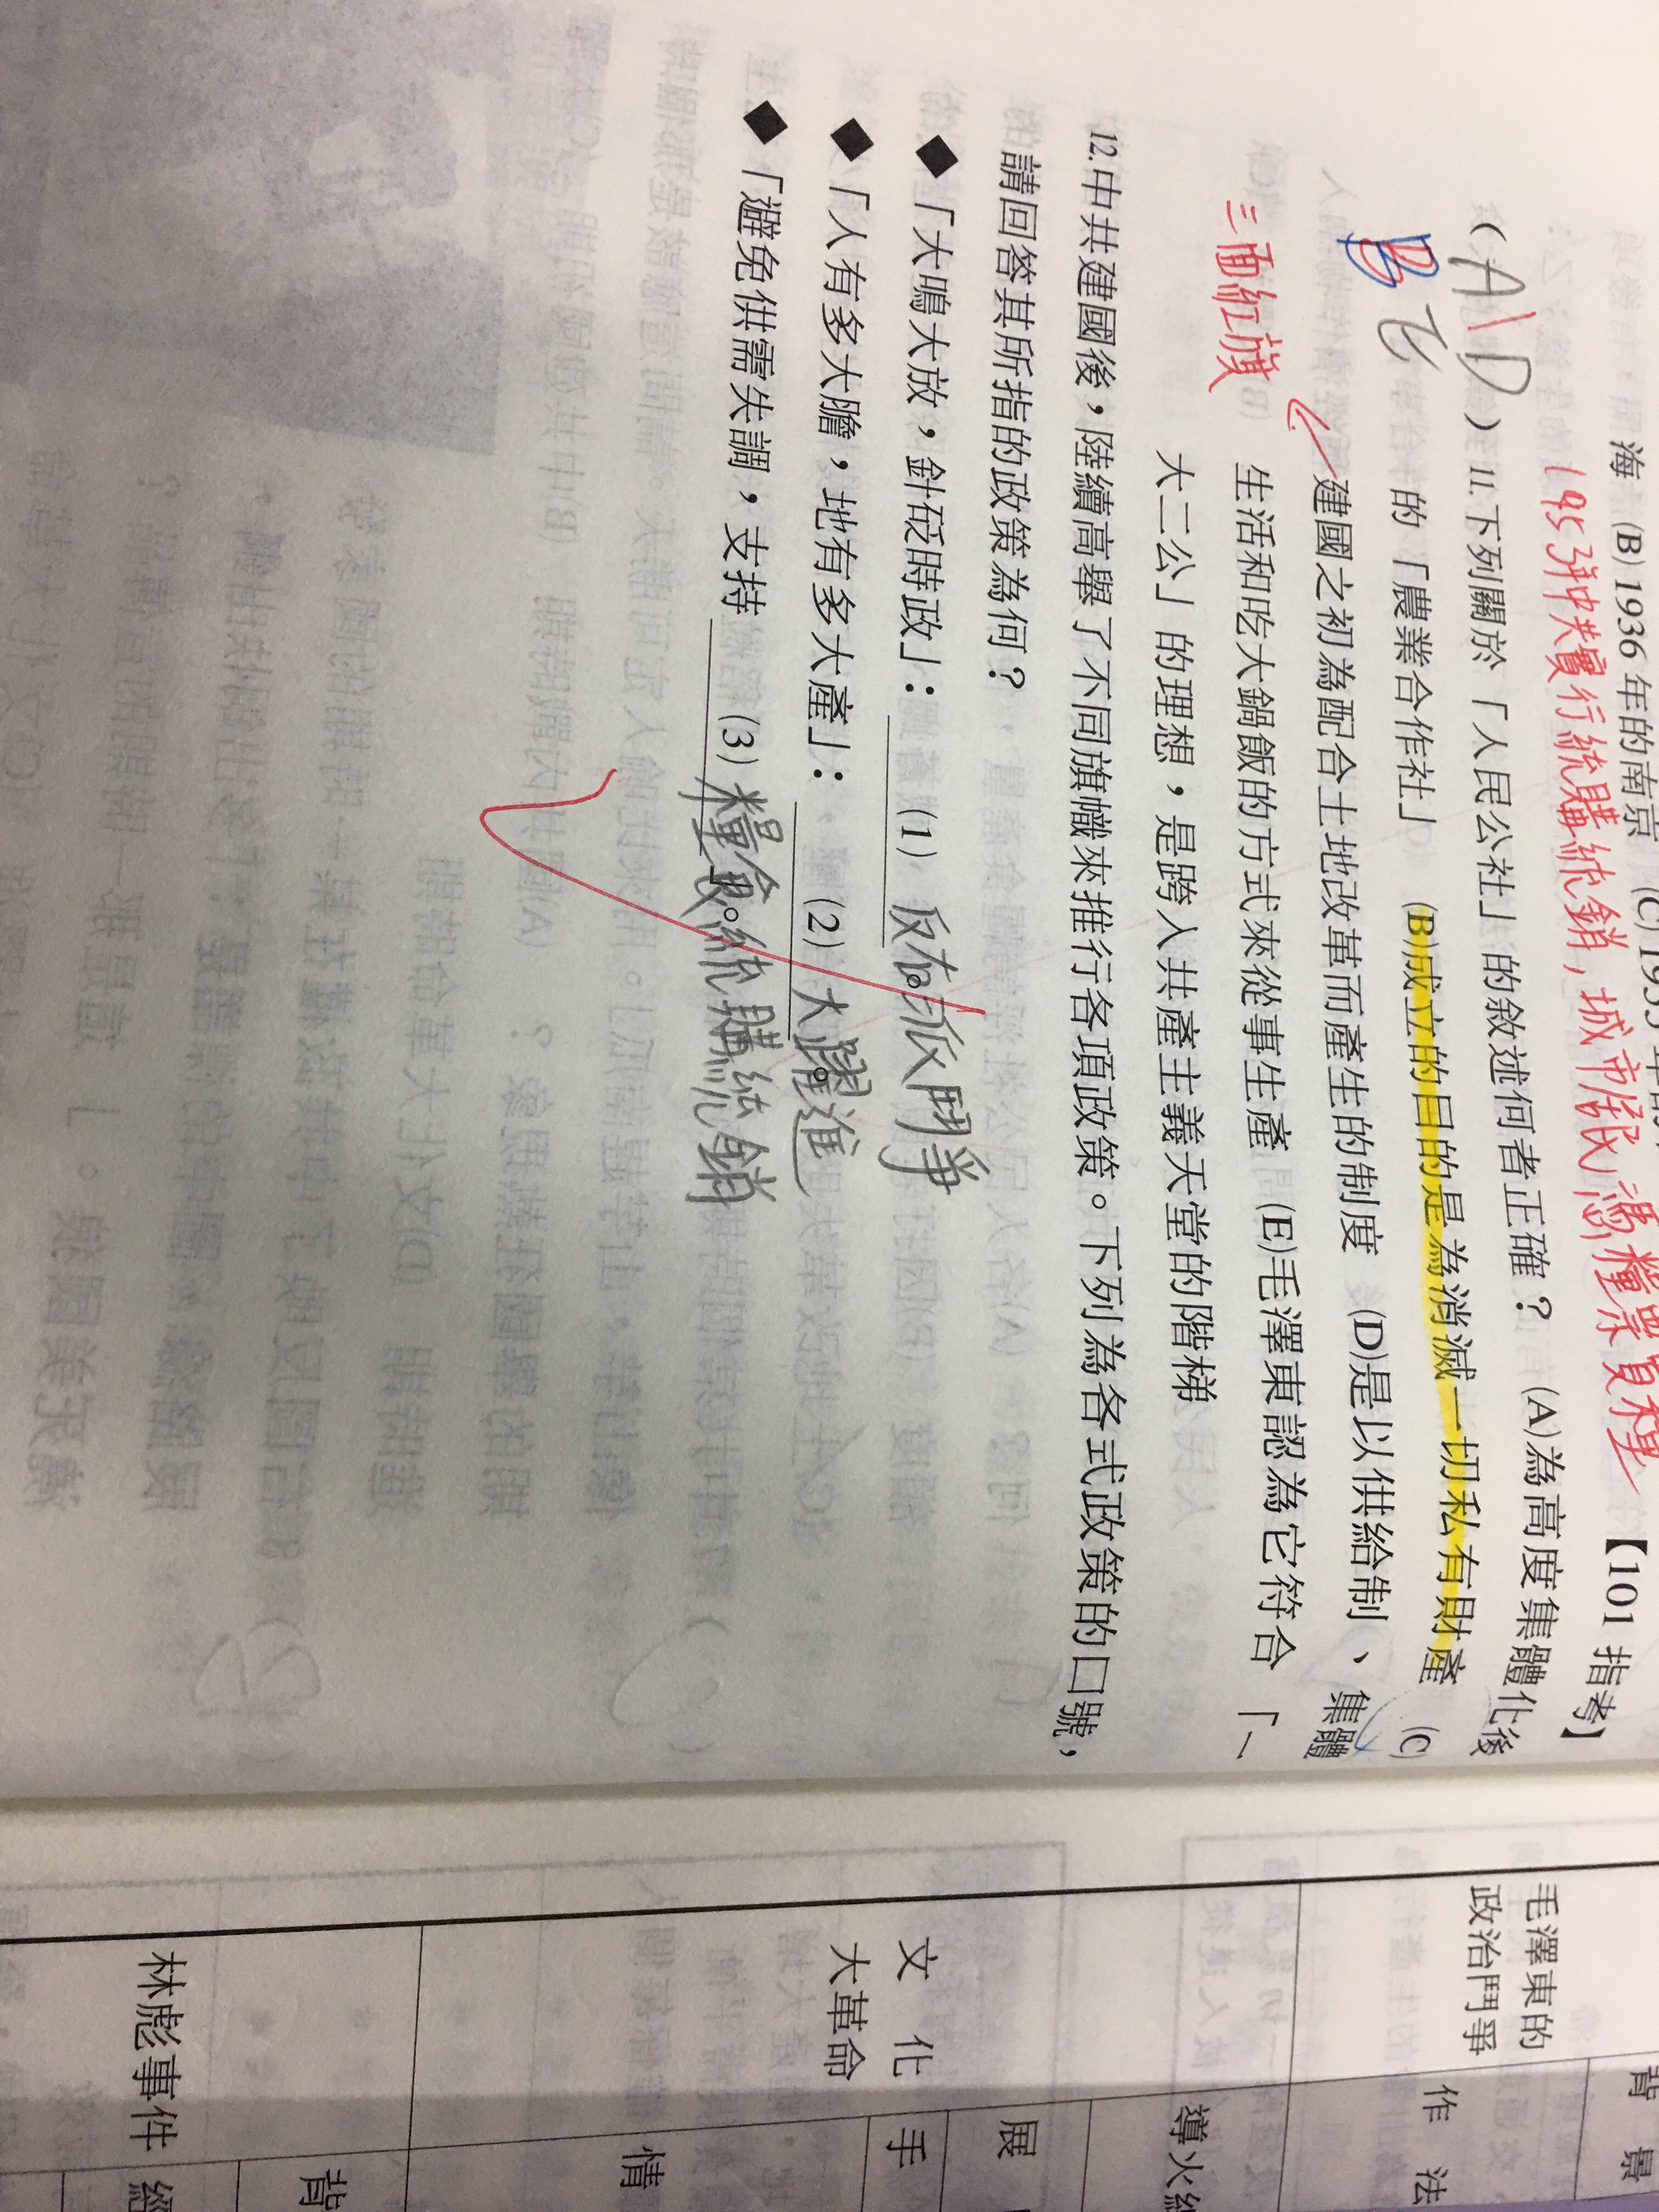 海 (B) 1936 年的南京 (C) 193
【101 指考】
1953年中共實行統購統銷，城市居民憑糧票買糧
( AD ) 11.下列關於「人民公社」的敘述何者正確？ (A)為高度集體化後
B
的「農業合作社」 (B)成立的目的是為消滅一切私有財產 (C)
建國之初為配合土地改革而產生的制度 (D)是以供給制、集體
三面紅旗
生活和吃大鍋飯的方式來從事生產 (E)毛澤東認為它符合「一
大二公」的理想，是跨入共產主義天堂的階梯
12.中共建國後，陸續高舉了不同旗幟來推行各項政策。下列為各式政策的口號，
請回答其所指的政策為何？
◆「大鳴大放，針砭時政」： (1) 反右派鬥爭 。
◆「人有多大膽，地有多大產」： (2) 大躍進 。
◆「避免供需失調，支持 (3) 糧食統購統銷 」。
毛澤東的
政治鬥爭
背景
作法
文化
大革命
導火線
展
手
情
林彪事件
背
經